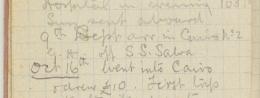 Hospital in evening
Sun sent aboard
9th Sept arr in Cairo No 2
G. H. off S.S. Salva
Oct 16th went into Cairo
& drew £10. First trip